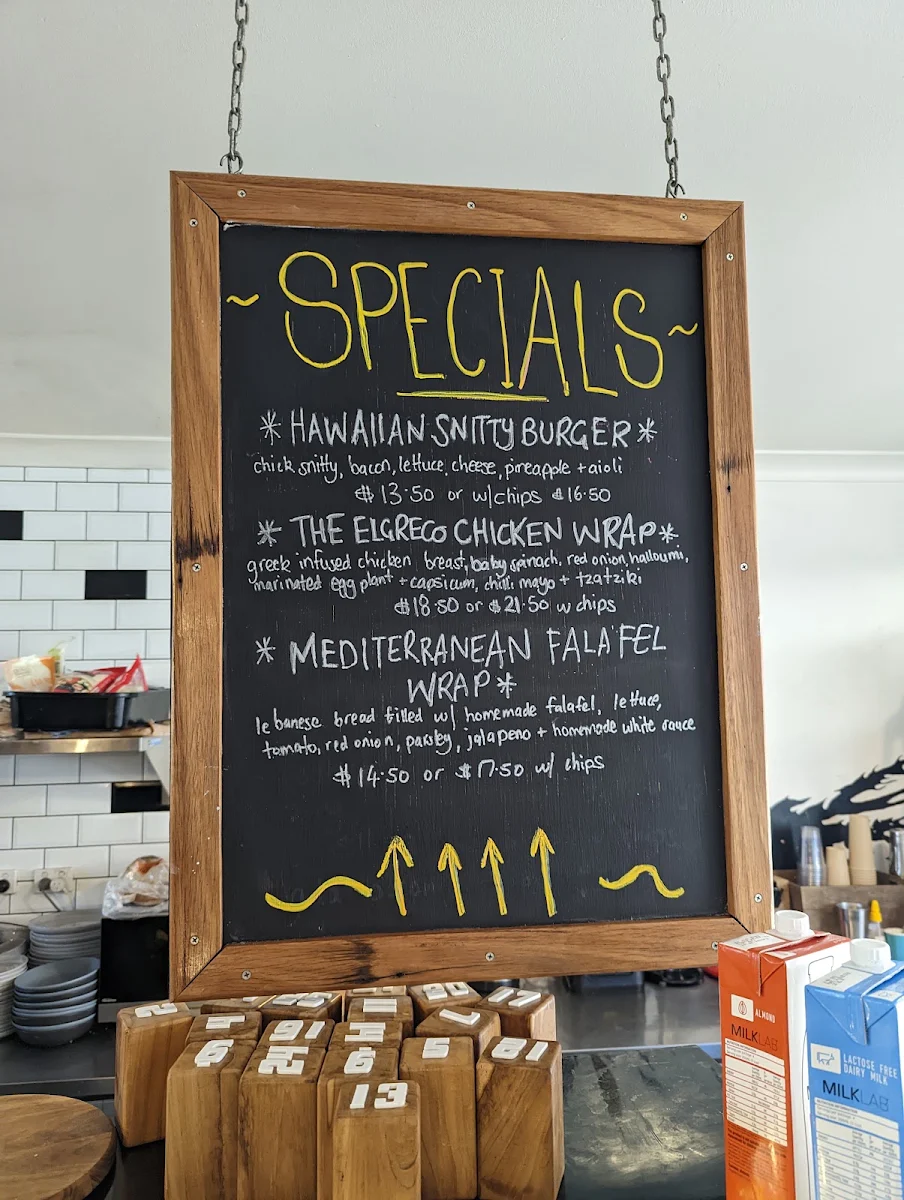 ~ SPECIALS ~
* HAWAIIAN SNITTY BURGER *
chick snitty, bacon, lettuce, cheese, pineapple + aioli
$ 13.50 or w/chips $16.50
* THE ELGRECO CHICKEN WRAP *
greek infused chicken breast, baby spinach, red onion, halloumi,
marinated egg plant + capsicum, chilli mayo + tzatziki
$18.50 or $21.50 w chips
* MEDITERRANEAN FALAFEL
WRAP *
lebanese bread filled w/ homemade falafel, lettuce,
tomato, red onion, parsley, jalapeno + homemade white sauce
$14.50 or $17.50 w/ chips
ALMOND
MILKLAB
LACTOSE FREE
DAIRY MILK
MILKLAB
2
17
16
7
9
24
6
5
10
13